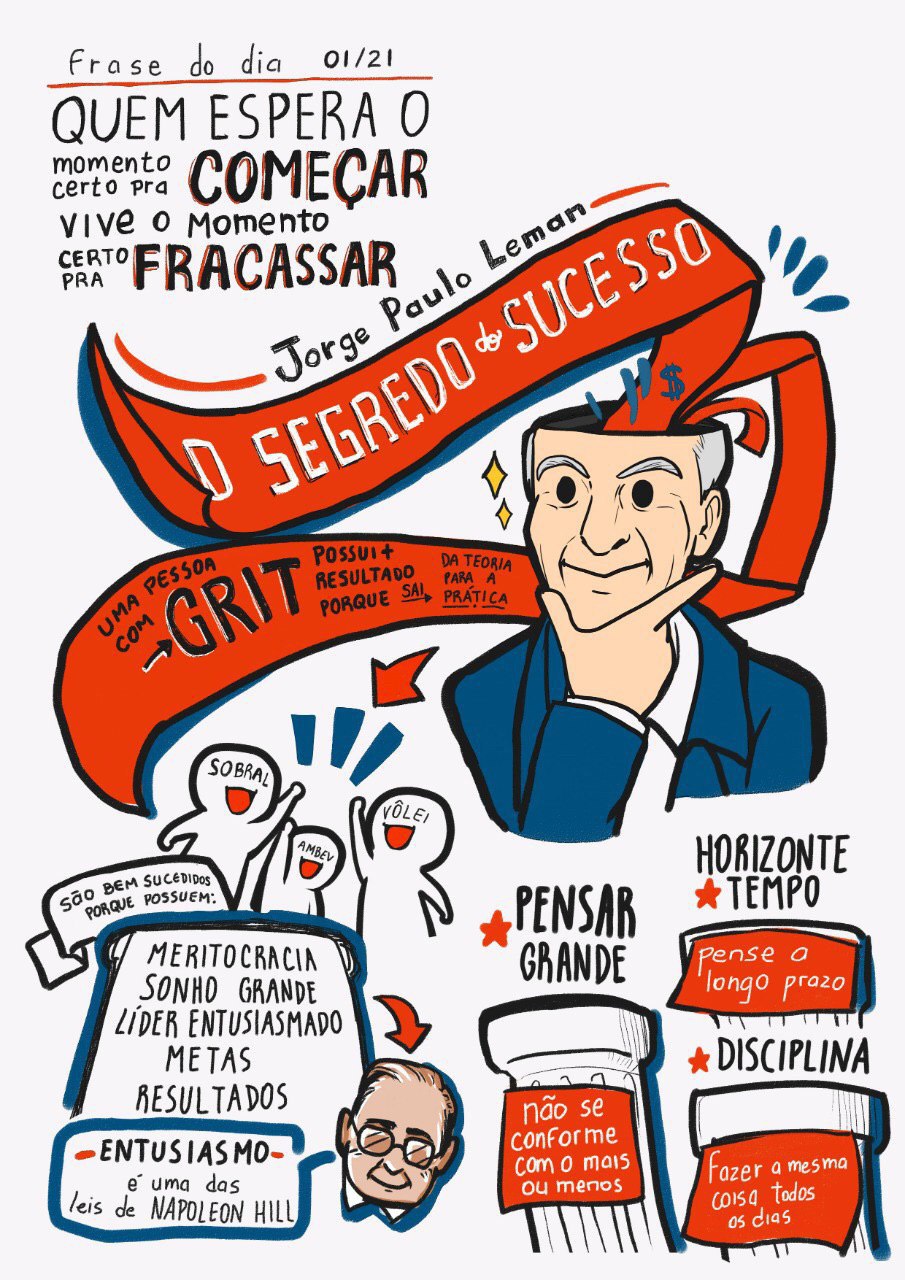 Frase do dia 01/21
QUEM ESPERA O
momento
certo pra COMEÇAR
VIVE O MOMENTO
CERTO
PRA FRACASSAR
Jorge Paulo Leman
O SEGREDO do SUCESSO
$
UMA PESSOA
COM → GRIT
POSSUI +
RESULTADO
PORQUE SAI
DA TEORIA
PARA A
PRÁTICA
SOBRAL
AMBEV
VÔLEI
SÃO BEM SUCEDIDOS
PORQUE POSSUEM:
MERITOCRACIA
SONHO GRANDE
LÍDER ENTUSIASMADO
METAS
RESULTADOS
- ENTUSIASMO -
é uma das
leis de NAPOLEON HILL
PENSAR
GRANDE
não se
conforme
com o mais
ou menos
HORIZONTE
TEMPO
pense a
longo prazo
DISCIPLINA
Fazer a mesma
coisa todos
os dias